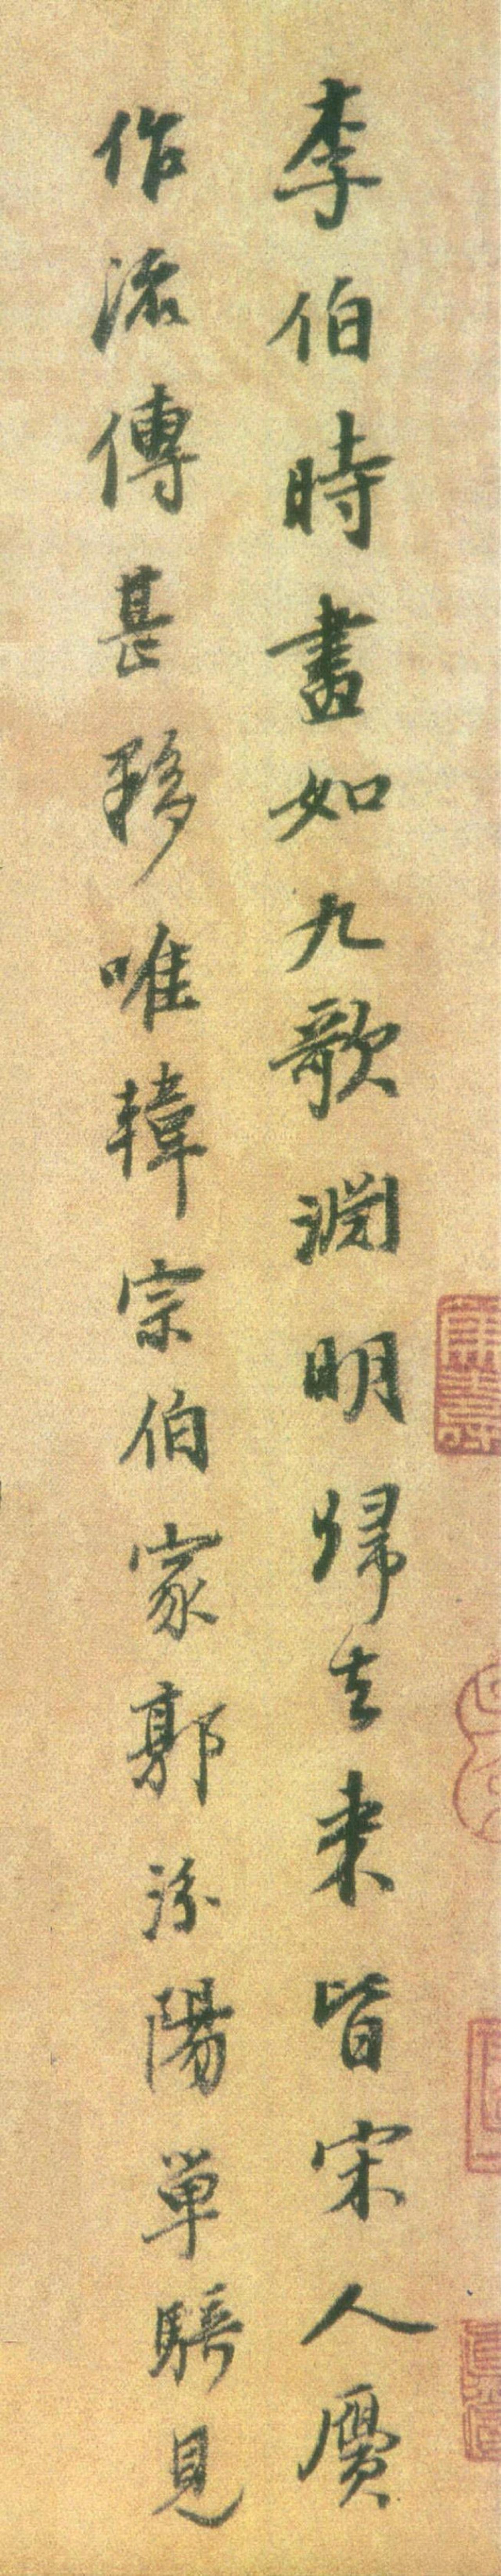 李伯時畫如九歌淵明歸去来皆宋人贋
作流傳甚移唯韓宗伯家郭汾陽單騎見